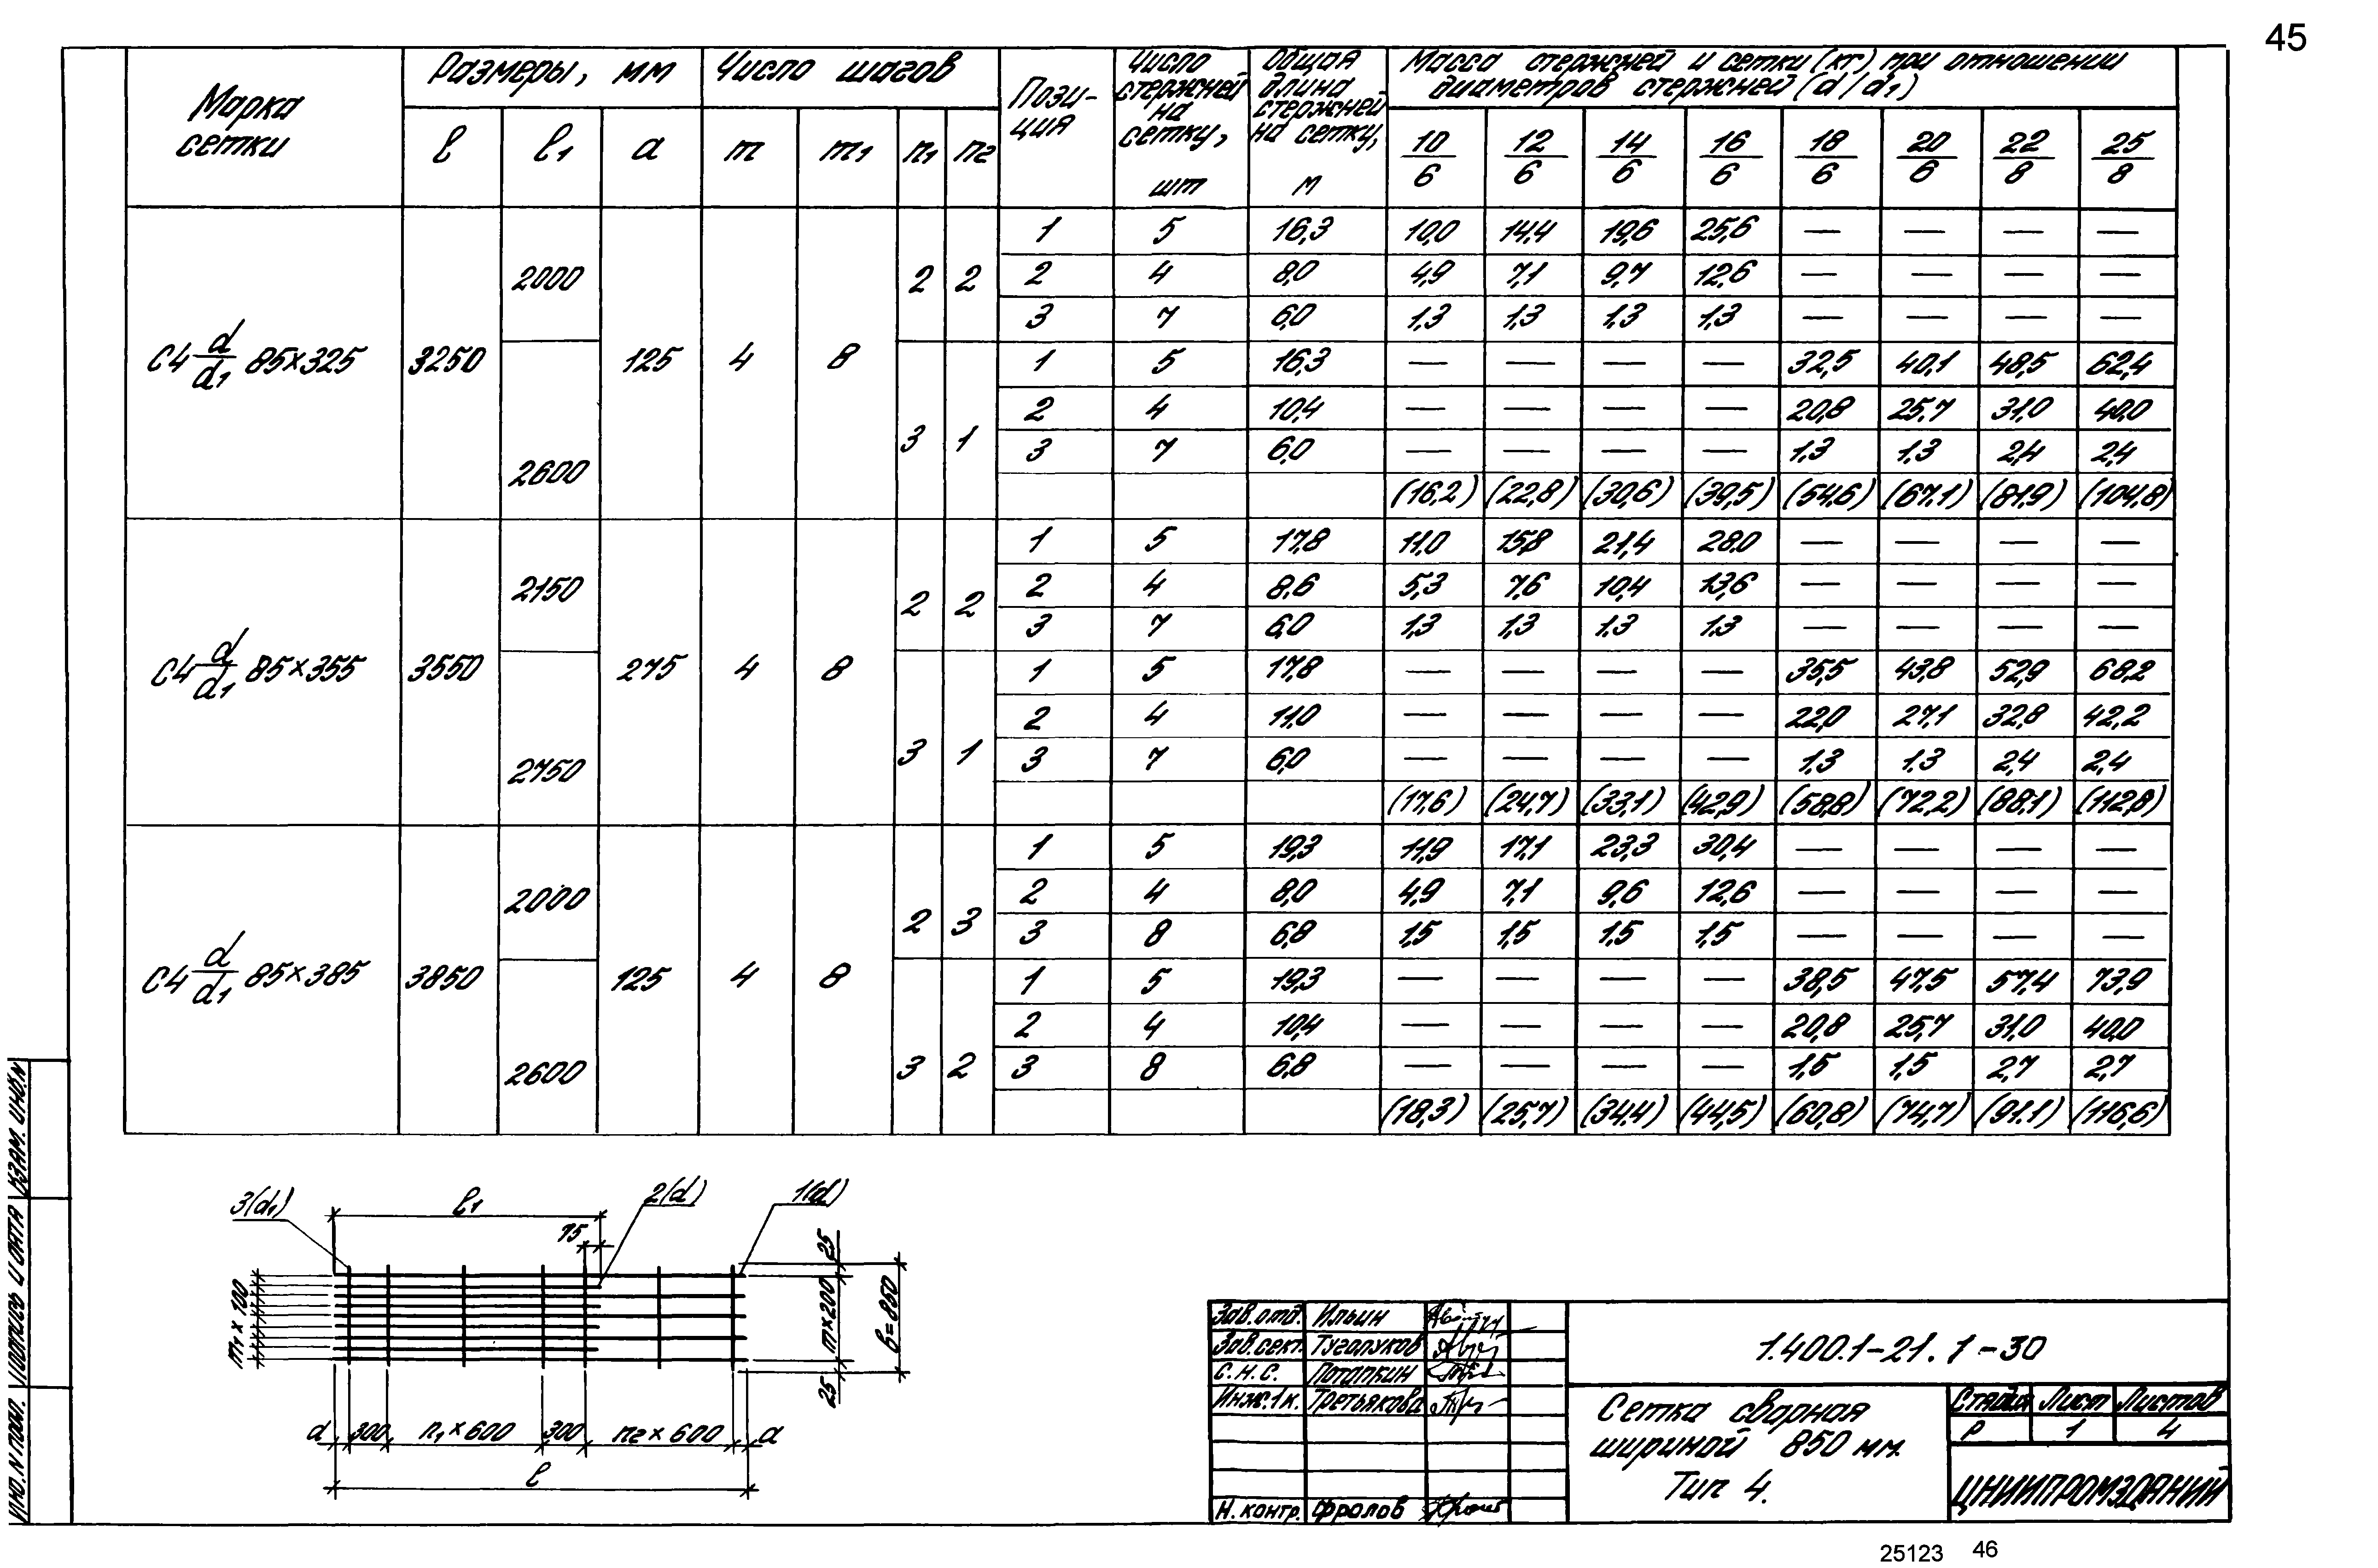 45
Марка сетки | Размеры, мм | Число шагов | Пози-ция | Число стержней на сетку, шт | Общая длина стержней на сетку, м | Масса стержней и сетки (кг) при отношении диаметров стержней (d/d1)
l | l1 | a | m | m1 | n1 | n2 | 10/6 | 12/6 | 14/6 | 16/6 | 18/6 | 20/6 | 22/8 | 25/8
С4 d/d1 85×325 | 3250 | 2000 | 125 | 4 | 8 | 2 | 2
1 | 5 | 16,3 | 10,0 | 14,4 | 19,6 | 25,6 | — | — | — | —
2 | 4 | 8,0 | 4,9 | 7,1 | 9,7 | 12,6 | — | — | — | —
3 | 7 | 6,0 | 1,3 | 1,3 | 1,3 | 1,3 | — | — | — | —
2600 | 3 | 1
1 | 5 | 16,3 | — | — | — | — | 32,5 | 40,1 | 48,5 | 62,4
2 | 4 | 10,4 | — | — | — | — | 20,8 | 25,7 | 31,0 | 40,0
3 | 7 | 6,0 | — | — | — | — | 1,3 | 1,3 | 2,4 | 2,4
(16,2) | (22,8) | (30,6) | (39,5) | (54,6) | (67,1) | (81,9) | (104,8)
С4 d/d1 85×355 | 3550 | 2150 | 275 | 4 | 8 | 2 | 2
1 | 5 | 17,8 | 11,0 | 15,8 | 21,4 | 28,0 | — | — | — | —
2 | 4 | 8,6 | 5,3 | 7,6 | 10,4 | 13,6 | — | — | — | —
3 | 7 | 6,0 | 1,3 | 1,3 | 1,3 | 1,3 | — | — | — | —
2750 | 3 | 1
1 | 5 | 17,8 | — | — | — | — | 35,5 | 43,8 | 52,9 | 68,2
2 | 4 | 11,0 | — | — | — | — | 22,0 | 27,1 | 32,8 | 42,2
3 | 7 | 6,0 | — | — | — | — | 1,3 | 1,3 | 2,4 | 2,4
(17,6) | (24,7) | (33,1) | (42,9) | (58,8) | (72,2) | (88,1) | (112,8)
С4 d/d1 85×385 | 3850 | 2000 | 125 | 4 | 8 | 2 | 3
1 | 5 | 19,3 | 11,9 | 17,1 | 23,3 | 30,4 | — | — | — | —
2 | 4 | 8,0 | 4,9 | 7,1 | 9,6 | 12,6 | — | — | — | —
3 | 8 | 6,8 | 1,5 | 1,5 | 1,5 | 1,5 | — | — | — | —
2600 | 3 | 2
1 | 5 | 19,3 | — | — | — | — | 38,5 | 47,5 | 57,4 | 73,9
2 | 4 | 10,4 | — | — | — | — | 20,8 | 25,7 | 31,0 | 40,0
3 | 8 | 6,8 | — | — | — | — | 1,5 | 1,5 | 2,7 | 2,7
(18,3) | (25,7) | (34,4) | (44,5) | (60,8) | (74,7) | (91.1) | (116,6)
3(d1) l1 2(d) 1(d)
75
m1×100
25
m×200
25
b=850
a 300 n1×600 300 n2×600 a
l
Инв. N подл. Подпись и дата Взам. инв. N
Зав. отд. Ильин
Зав. сект. Туголуков
С. Н. С. Потапкин
Инж. 1к. Третьякова
Н. контр. Фролов
1.400.1-21. 1-30
Сетка сварная
шириной 850 мм.
Тип 4.
Стадия Лист Листов
Р 1 4
ЦНИИПРОМЗДАНИЙ
25123 46